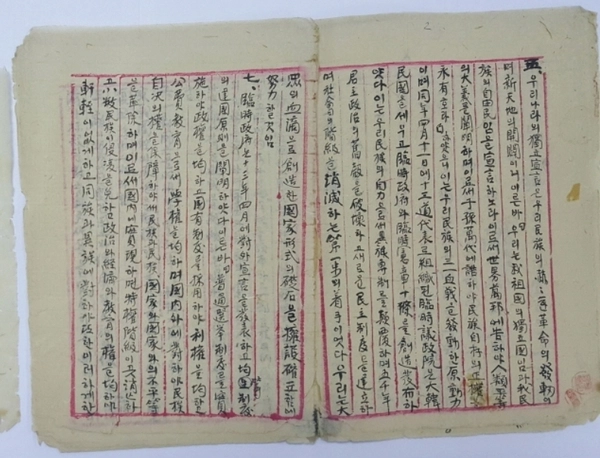 五、우리나라의 獨立宣言은 우리民族의 赫〃한 革命의 發動의
며 新天地의 開闢이니 이른바 우리는 我祖國의 獨立國임과 我民
族의 自由民임을 宣言하노라 이로써 世界萬邦에 告하야 人類平等
의 大義를 闡明하며 이로써 子孫萬代에 誥하야 民族自存의 正權을
永有호라 하얏으니 이는 우리民族의 三一血戰을 發動한 原動力
이며 同年 四月十一日에 十三道代表로 組織된 臨時議政院은 大韓
民國을 세우고 臨時政府와 臨時憲章十條를 創造發布하
얏다 이는 우리民族의 自力으로써 異族專制를 顚覆하며 五千年
君主政治의 舊殼을 破壞하고 새로운 民主制度를 建立하
며 社會의 階級을 消滅하는 第一步의 着手이엇다 우리는 大
衆의 血滴으로 創造한 國家形式의 礎石을 擁護確立함에
努力할것임
七、臨時政府는 十三年 四月에 對外宣言을 發表하고 三均制度
의 建國原則을 闡明하얏다 이른바 普通選擧制度를 實
施하야 政權을 均하고 國有制度를 採用하야 利權을 均하고
公費敎育으로써 學權을 均하며 國內外에 對하야 民族
自決의 權을 保障하야써 民族과民族 國家와國家와의 不平等
을 革除하며 이로써 國內에 實現하면 特權階級이 곳 消亡하
고 少數民族이 侵凌을 免하고 政治와 經濟와 敎育의 權을 均하야
軒輊이 없게하고 同族과 異族에 對하야 또한 이러하게 한